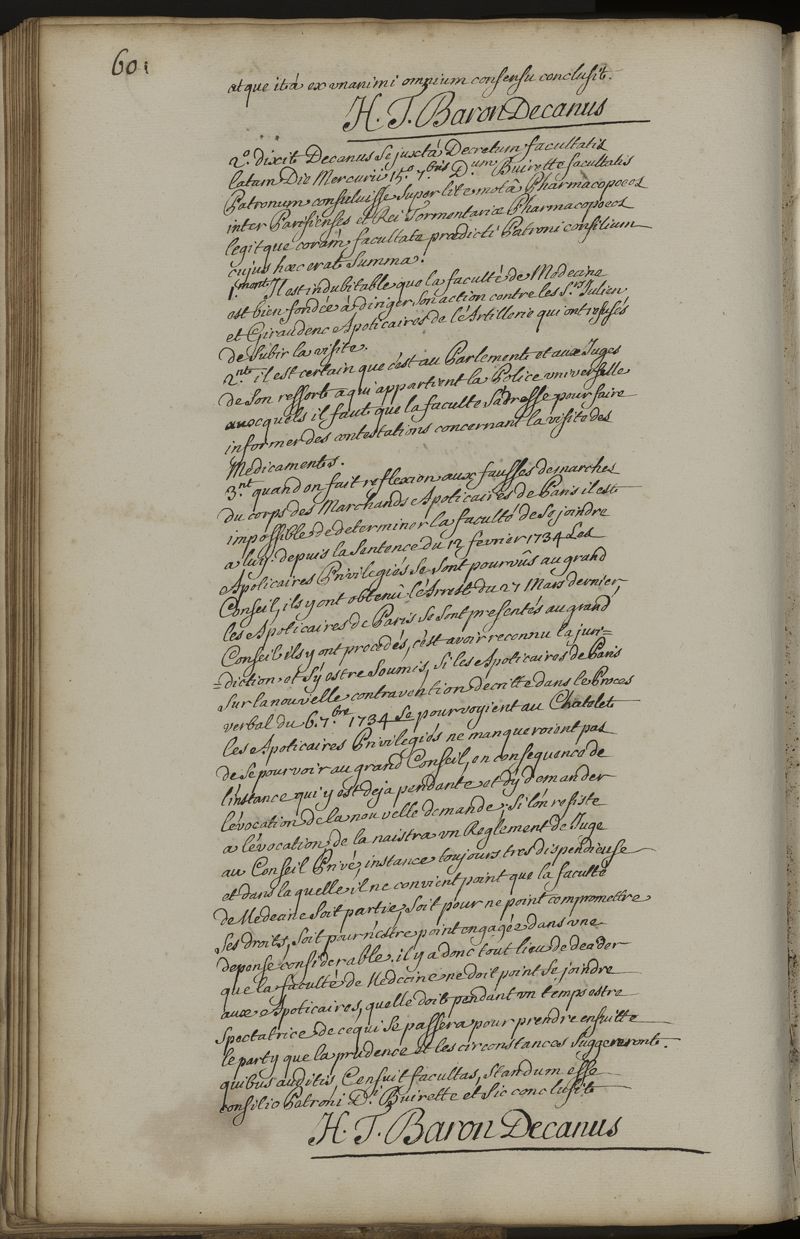 60.
atque ità ex unanimi omnium consensu conclusit.
H. T. Baron Decanus
2.° dixit Decanus se juxtà Decretum facultatis
latum Die Mercurii 15.° 7.bris D.um Buirette facultatis
Patronum consuluisse super lite motâ Pharmacopoeos
inter Parisienses et Rei Tormentariæ Pharmacopoeos
legitque coràm facultate prædicti Patroni consilium
cujus hæc erat Summa.
1.mont Il est indubitable que la faculté de Medecine
est bien fondée à diriger son action contre les S.rs Julien
et Giraudenc Apoticaires de l'Artillerie qui ont refusés
de subir la visite.
2.nt il est certain que c'est au Parlement et aux Juges
de son ressort a qui appartient la Police universelle
auxquels il faut que la faculté s'adresse pour faire
informer des contestations concernant la visite des
Medicaments.
3.nt quand on fait reflexion aux fausses demarches
du corps des Marchands Apoticaires de Paris il est
impossible de determiner la faculté de se joindre
a luy. depuis la Sentence du 12 fevrier 1734 Les
Apoticaires Privilegiés se sont pourvûs au grand
Conseil, ils y ont obtenû l'Arrest du 27 Mars dernier,
les Apoticaires de Paris se sont presentés au grand
Conseil ils y ont procedés, c'est avoir reconnu la juri=
=diction et s'y estre soumis, Si les Apoticaires de Paris
sur la nouvelle contravention décritte dans le Procès
verbal du 6. 7.bre 1734 se pourvoyient au Chatelet
les Apoticaires Privilegiés ne manqueroient pas
de se pourvoir au grand Conseil, en consequence de
l'instance qui y est deja pendante et d'y demander
l'évocation de la nouvelle demande, Si l'on resiste
a l'évocation, de la naistra un Reglement de Juge
au Conseil Privé, instance toujours tres dispendieuse
et dans la quelle il ne convient point que la faculté
de Medecine soit partie, soit pour ne point compromettre
ses droits, soit pour n'estre point engagée dans une
depense considerable. il y a donc tout lieu de decider
que la faculté de Medecine ne doit point se joindre
aux Apoticaires, quelle doit pendant un temps estre
spectatrice de ce qui se passera pour prendre ensuitte
le party que la prudence et les circonstances suggereront.
quibus auditis, Censuit facultas, standum esse
consilio Patroni D.i Buirette et sic conclusit
H. T. Baron Decanus